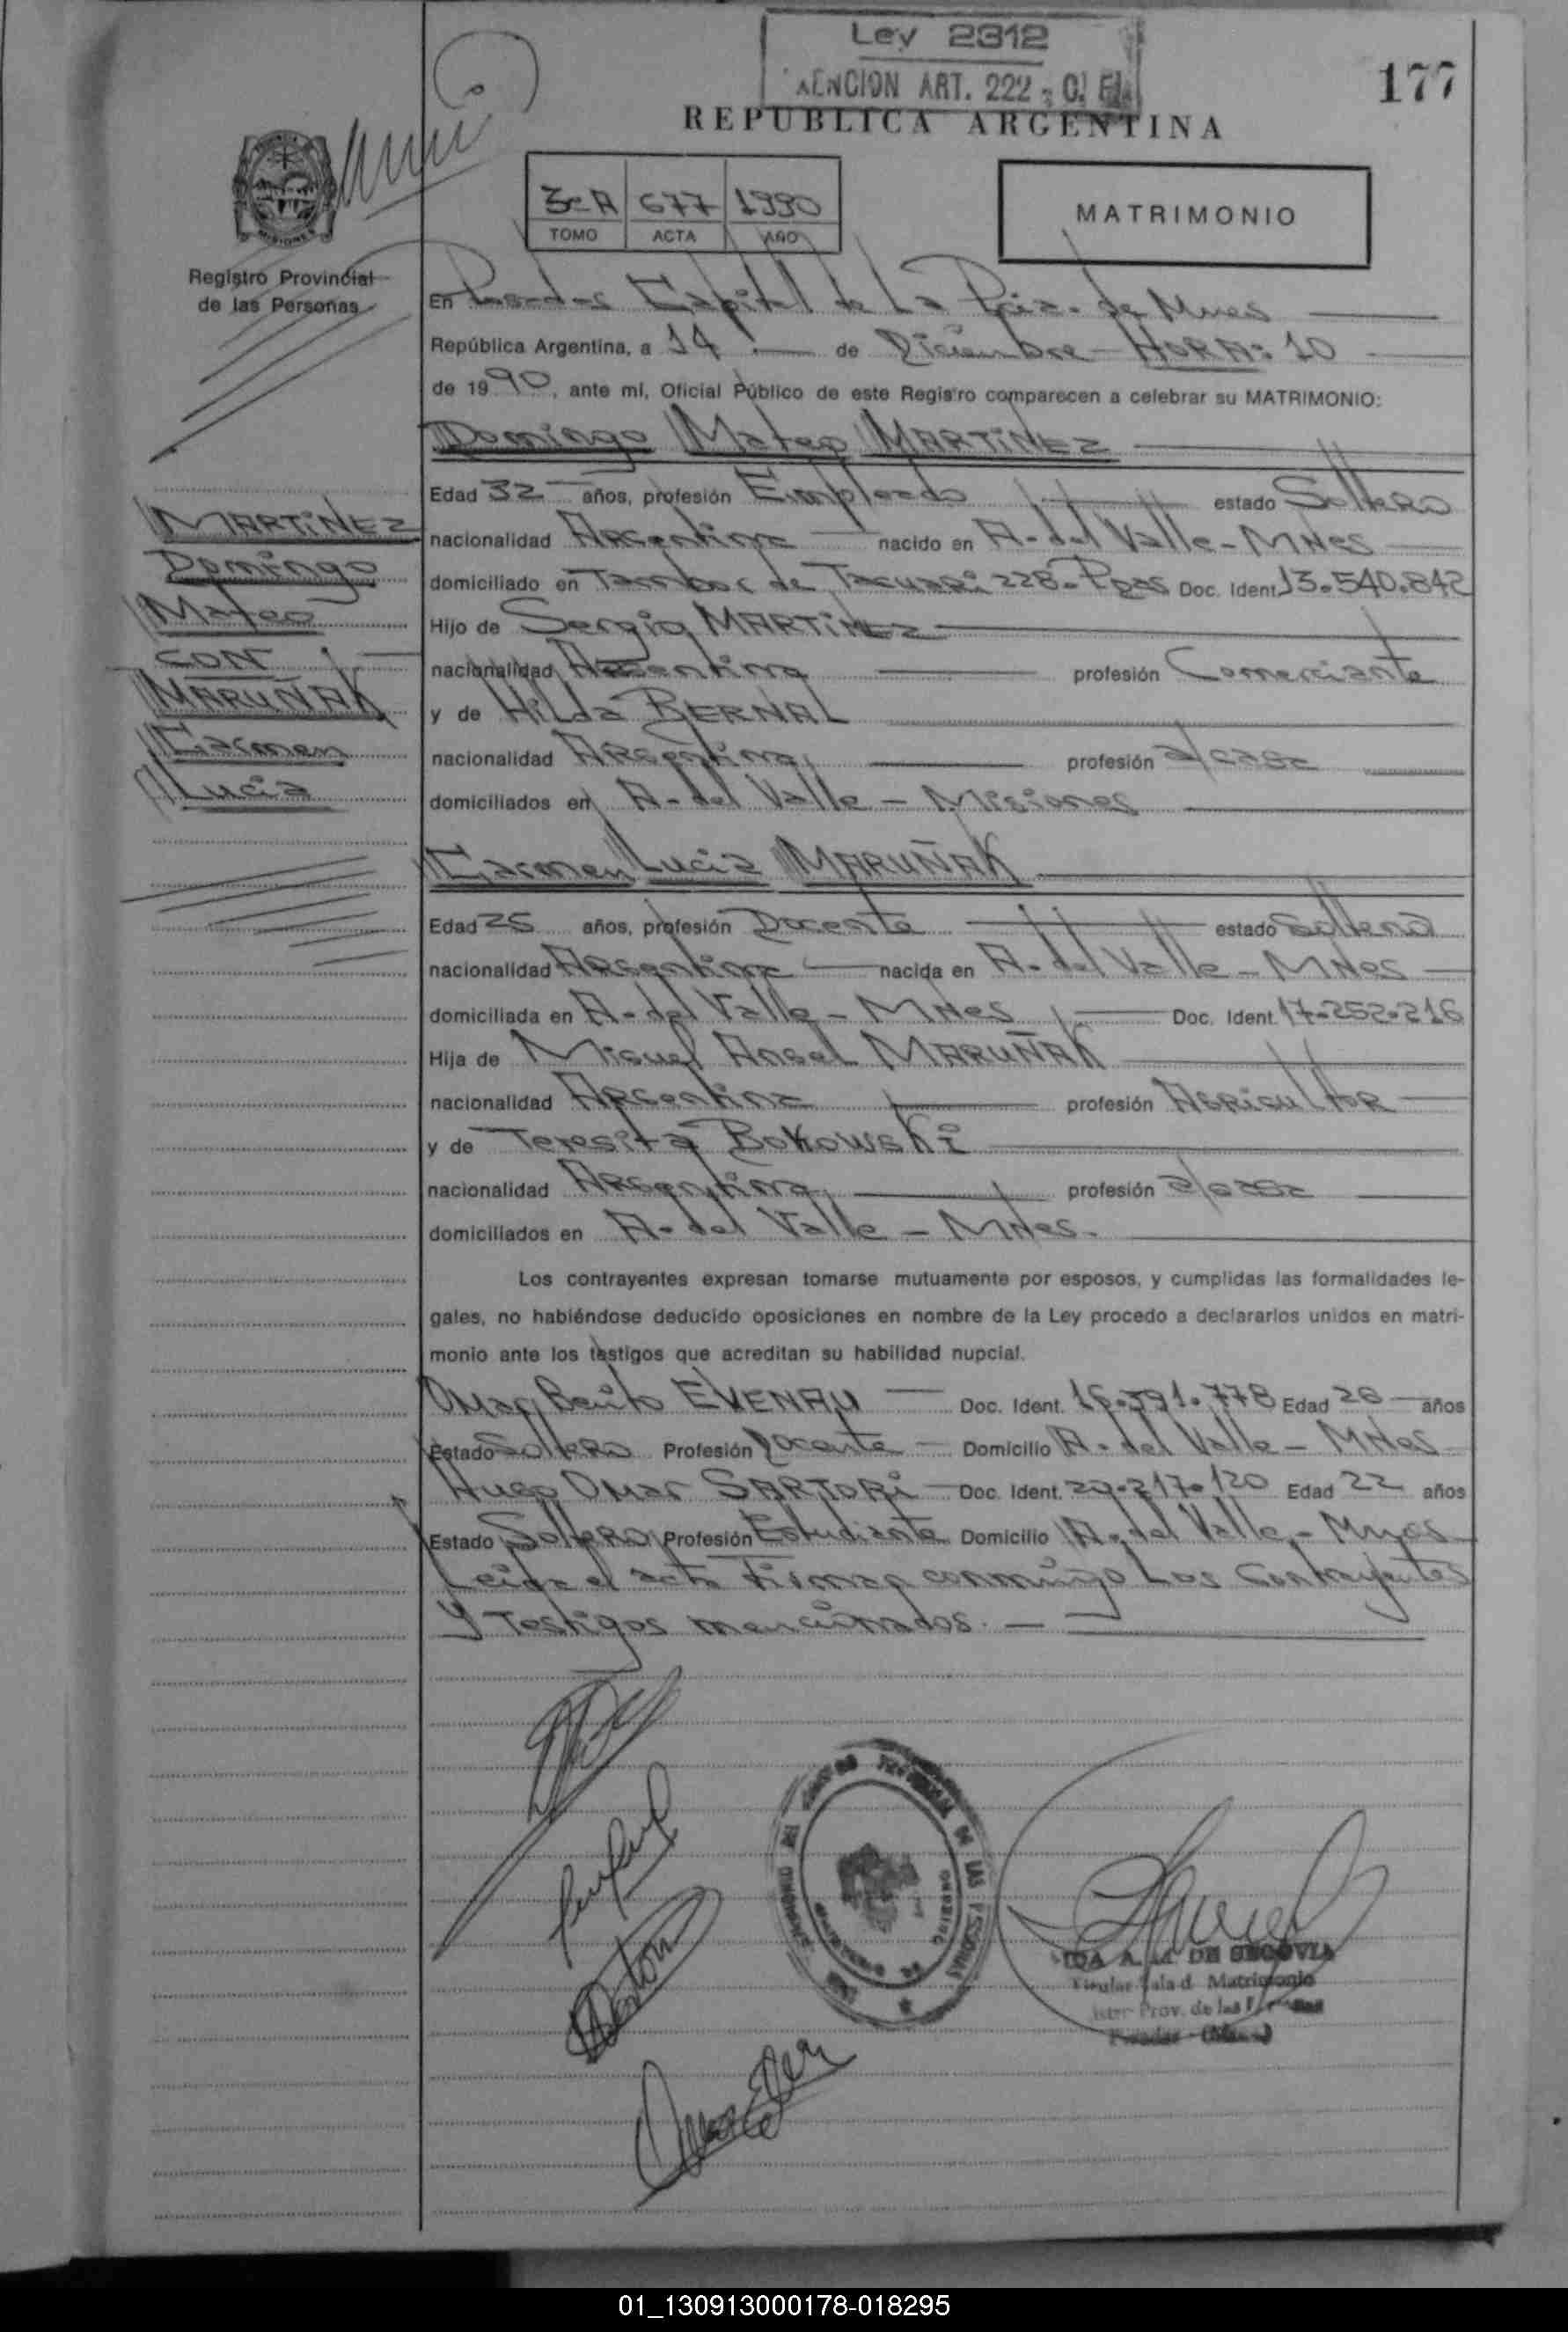 Ley 2312
ART. 222
177
REPUBLICA ARGENTINA
3º A 677 1990
TOMO ACTA AÑO
MATRIMONIO
MISIONES
Registro Provincial
de las Personas
En Posadas Capital de La Pcia. de Mnes
República Argentina, a 14 de Diciembre - HORA: 10
de 1990, ante mí, Oficial Público de este Registro comparecen a celebrar su MATRIMONIO:
Domingo Mateo MARTiNEZ
Edad 32 años, profesión Empleado estado Soltero
nacionalidad Argentina nacido en A. del Valle - MNes
domiciliado en Tambor de Tacuari 228. Pdas Doc. Ident. 13.540.842
Hijo de Sergio MARTiNEZ
nacionalidad Argentina profesión Comerciante
y de Hilda BERNAL
nacionalidad Argentina profesión a/casa
domiciliados en A. del Valle - Misiones
Carmen Lucia MARUÑAK
Edad 25 años, profesión Docente estado Soltera
nacionalidad Argentina nacida en A. del Valle - MNes
domiciliada en A. del Valle - MNes Doc. Ident. 17.252.216
Hija de Miguel Angel MARUÑAK
nacionalidad Argentina profesión Agricultor
y de Teresita Bokowski
nacionalidad Argentina profesión a/casa
domiciliados en A. del Valle - MNes.
MARTiNEZ
Domingo
Mateo
CON
MARUÑAK
Carmen
Lucia
Los contrayentes expresan tomarse mutuamente por esposos, y cumplidas las formalidades le-
gales, no habiéndose deducido oposiciones en nombre de la Ley procedo a declararlos unidos en matri-
monio ante los testigos que acreditan su habilidad nupcial.
Omar Benito EVENAU Doc. Ident. 16.591.778 Edad 26 años
Estado Soltero Profesión Docente Domicilio A. del Valle - MNes
Hugo Omar SARTORi Doc. Ident. 20.217.120 Edad 22 años
Estado Soltero Profesión Estudiante Domicilio A. del Valle - Mnes
Leida el acta Firman conmigo Los Contrayentes
y Testigos mencionados.
DE SEGOVIA
Titular Sala d. Matrimonio
Prov. de las
01_130913000178-018295